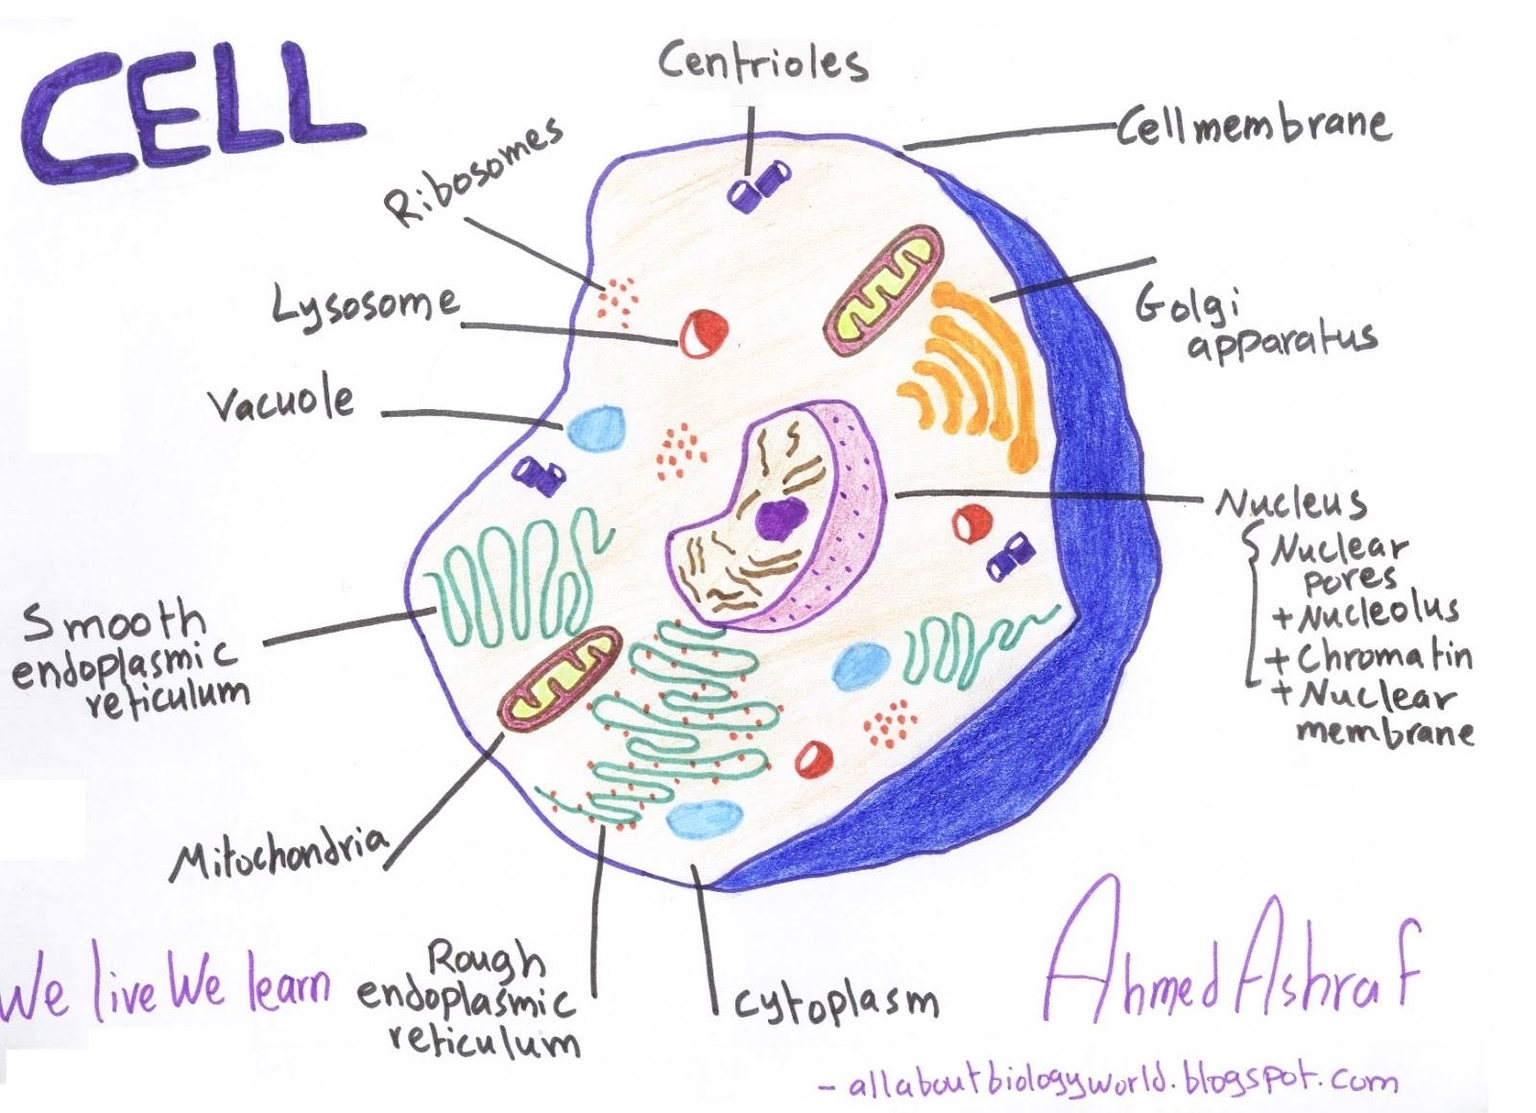 CELL
Centrioles
Cell membrane
Ribosomes
Lysosome
Golgi
apparatus
Vacuole
Nucleus
{ Nuclear
pores
+ Nucleolus
+ Chromatin
+ Nuclear
membrane
Smooth
endoplasmic
reticulum
Mitochondria
Rough
endoplasmic
reticulum
Cytoplasm
We live We learn
Ahmed Ashraf
- allaboutbiologyworld.blogspot.com